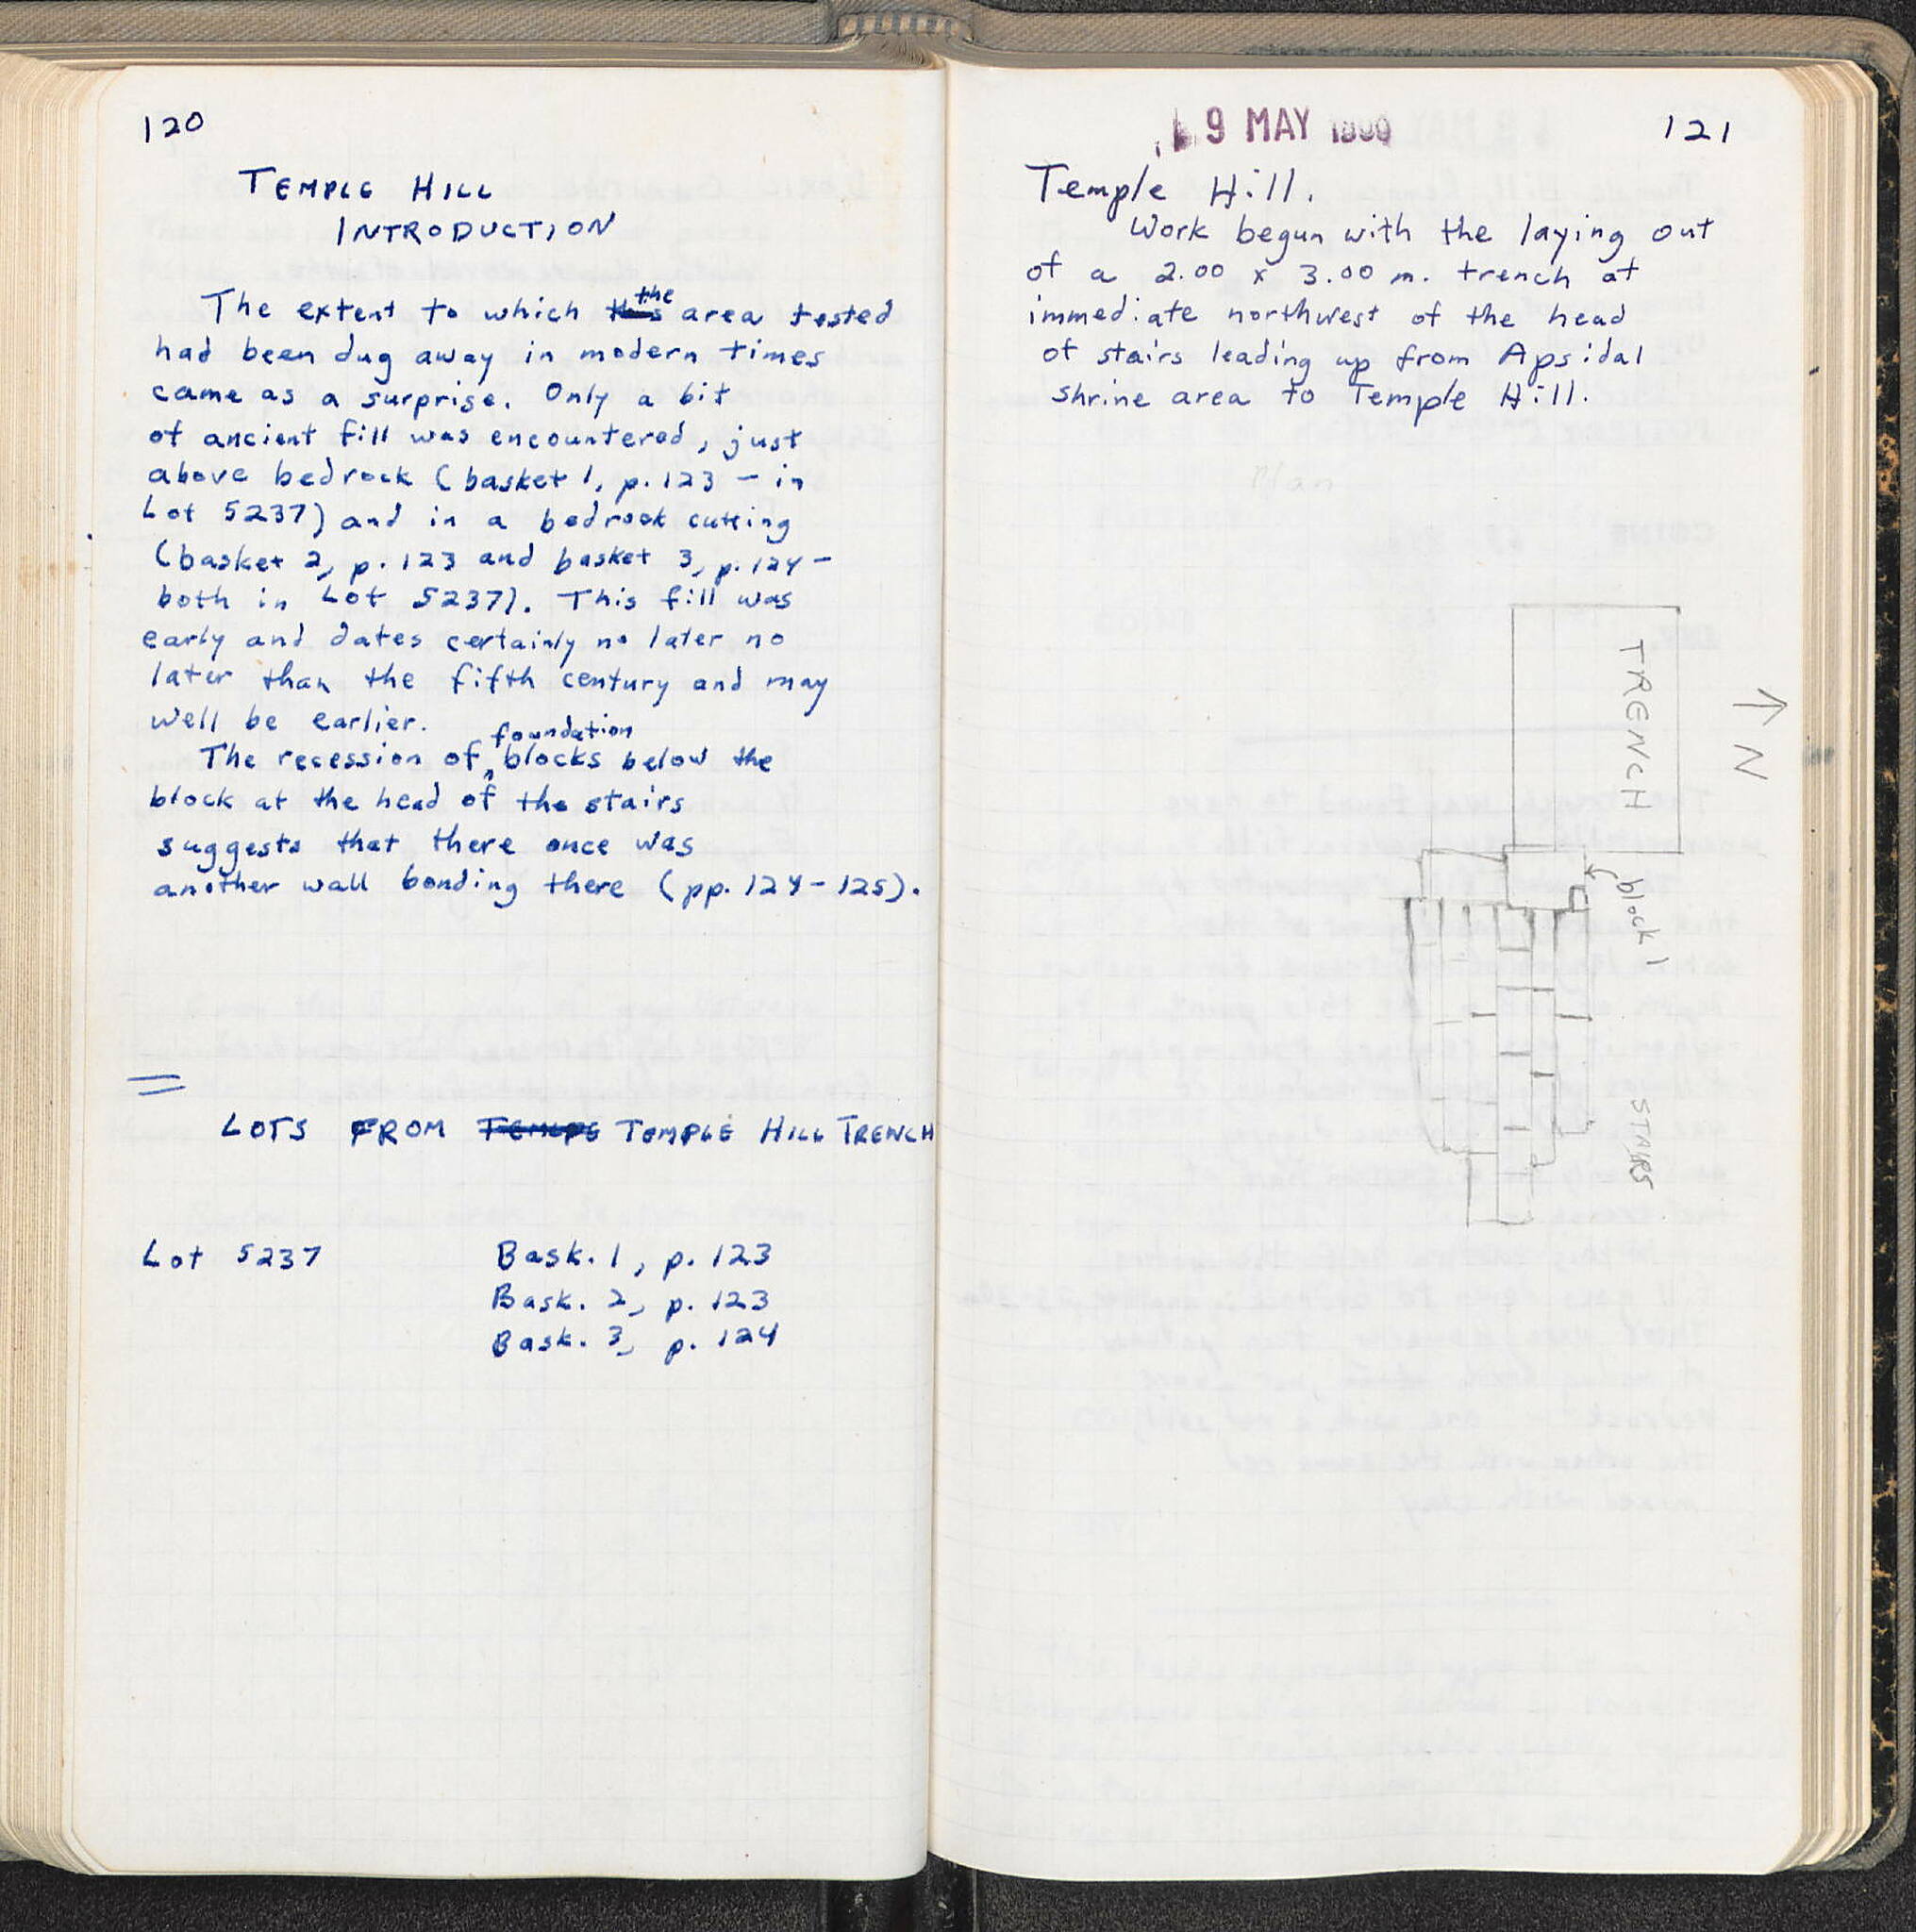 120
TEMPLE HILL
INTRODUCTION
The extent to which the area tested
had been dug away in modern times
came as a surprise. Only a bit
of ancient fill was encountered, just
above bedrock (basket 1, p. 123 – in
Lot 5237) and in a bedrock cutting
(basket 2, p. 123 and basket 3, p. 124 –
both in Lot 5237). This fill was
early and dates certainly no later no
later than the fifth century and may
well be earlier.
The recession of foundation blocks below the
block at the head of the stairs
suggests that there once was
another wall bonding there (pp. 124–125).
LOTS FROM TEMPLE HILL TRENCH
Lot 5237 Bask. 1, p. 123
Bask. 2, p. 123
Bask. 3, p. 124
9 MAY
121
Temple Hill.
Work begun with the laying out
of a 2.00 x 3.00 m. trench at
immediate northwest of the head
of stairs leading up from Apsidal
shrine area to Temple Hill.
Plan
TRENCH
N
block 1
STAIRS